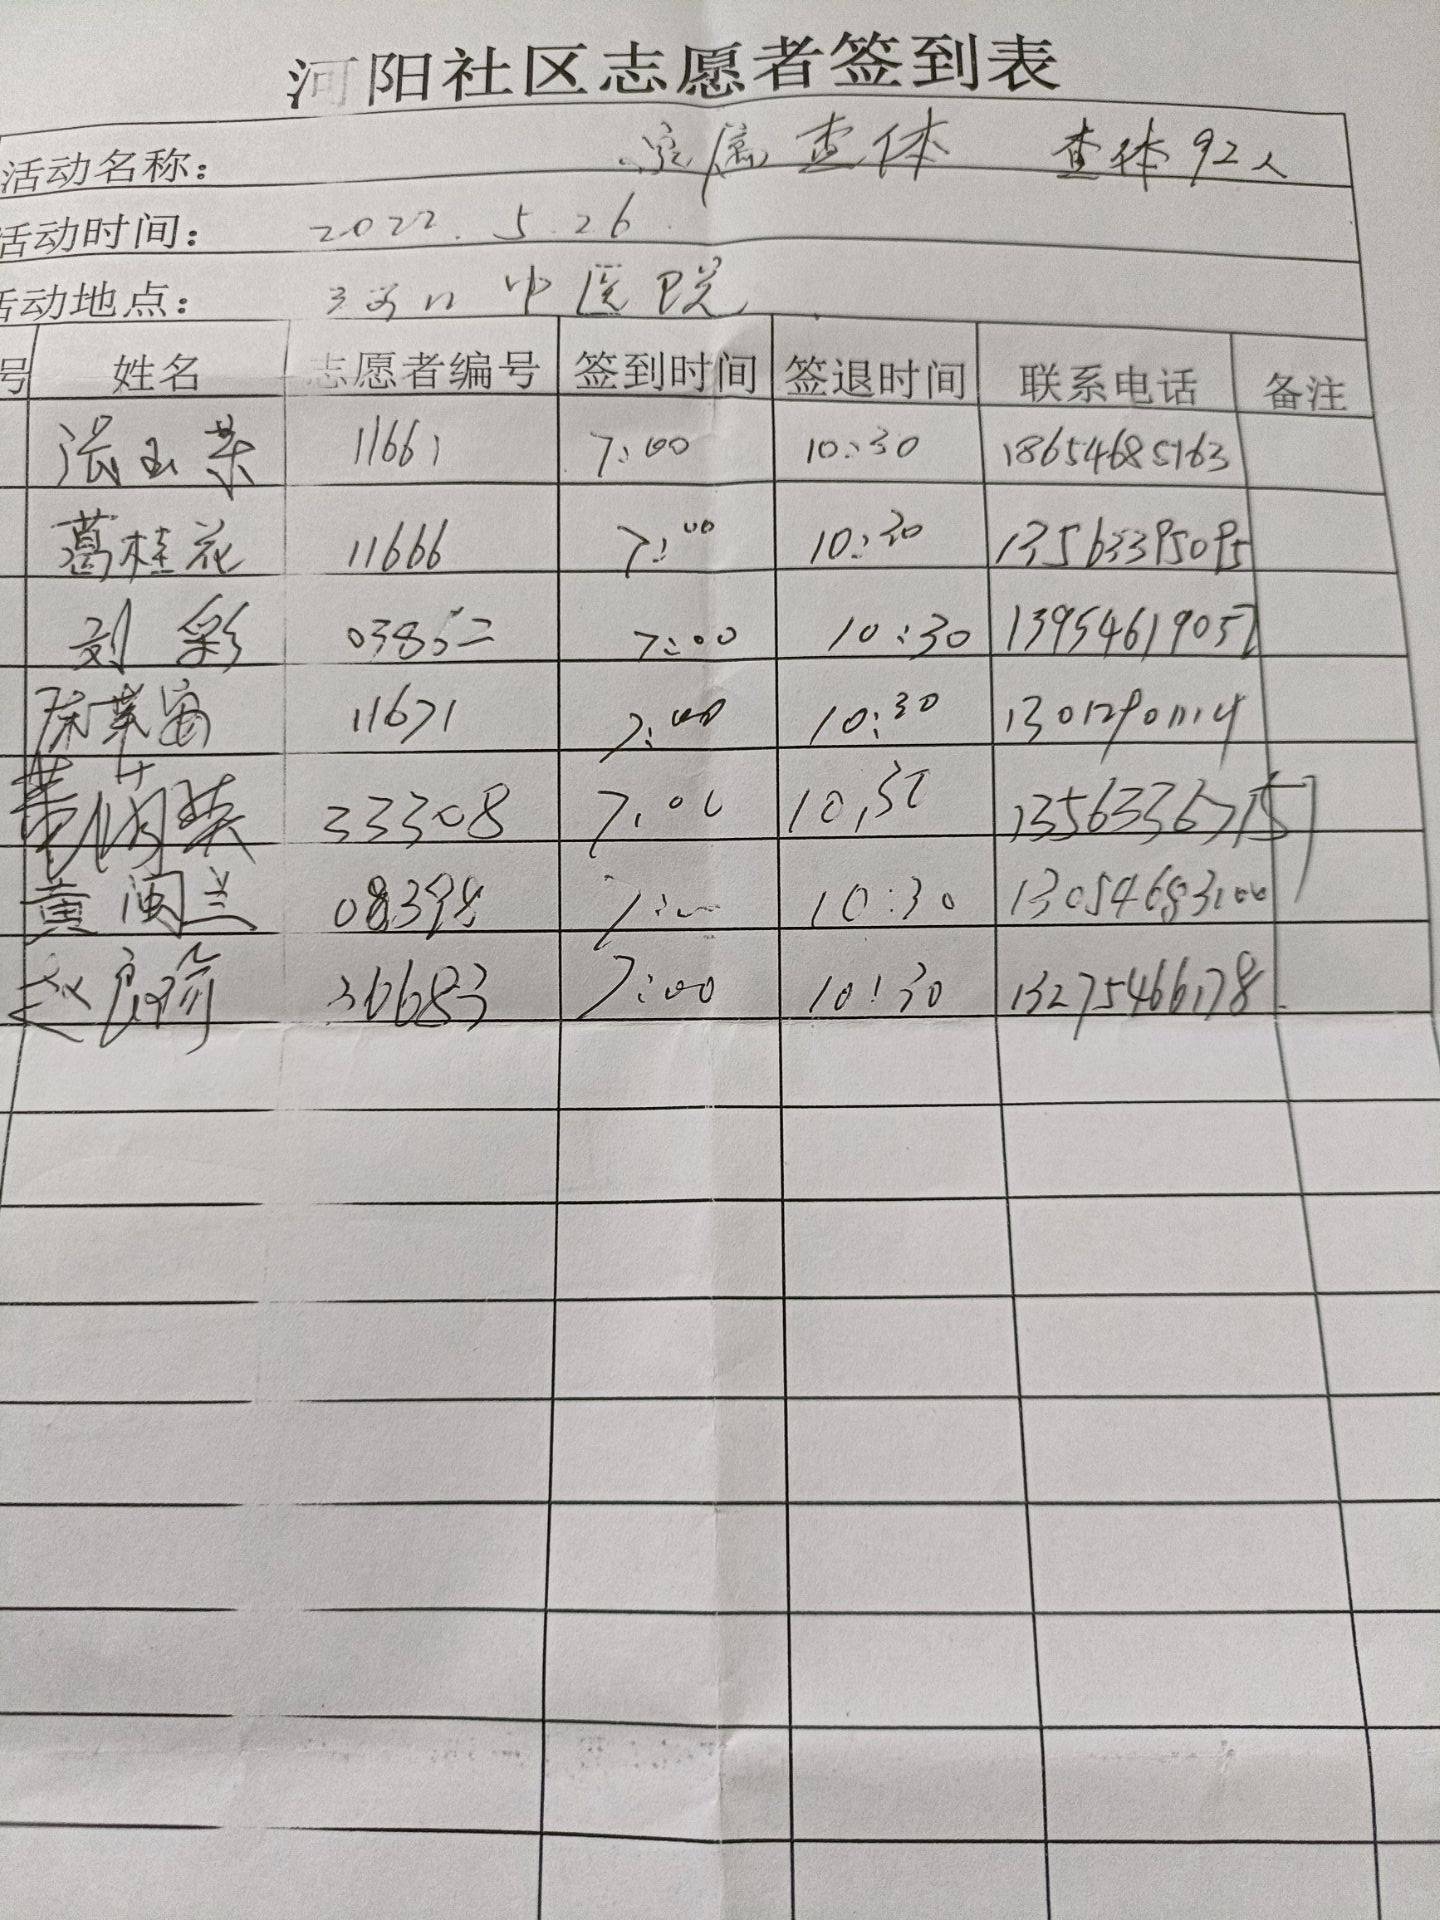 河阳社区志愿者签到表
活动名称： 家属查体 查体92人
活动时间： 2022.5.26.
活动地点： 中医院
号 姓名 志愿者编号 签到时间 签退时间 联系电话 备注
张玉荣 11661 7:00 10:30 18654685163
葛桂花 11666 7:00 10:30 13563395095
刘彩 03852 7:00 10:30 13954619057
11671 7:00 10:30 13012901114
33308 7:00 10:30 13563367157
黄闽兰 08398 7:00 10:30 13054683100
赵良瑜 36683 7:00 10:30 13275466178